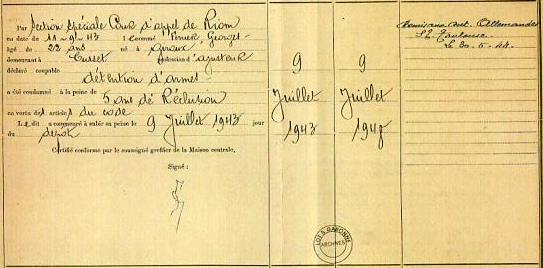 Par Section Spéciale Cour d'appel de Riom
en date du 11-9-43 l nommé Pernek Georges
âgé de 22 ans né à
demeurant à Cusset profession d'ajusteur
déclaré coupable
détention d'armes
a été condamné à la peine de
5 ans de Réclusion
en vertu des articles du code
Le dit a commencé à subir sa peine le 9 Juillet 1943 jour
du depot
Certifié conforme par le soussigné greffier de la Maison centrale,
Signé :
9
Juillet
1943
9
Juillet
1948
Remis aux aut. Allemandes
Toulouse
Le 30-5-44
LOT & GARONNE
ARCHIVES